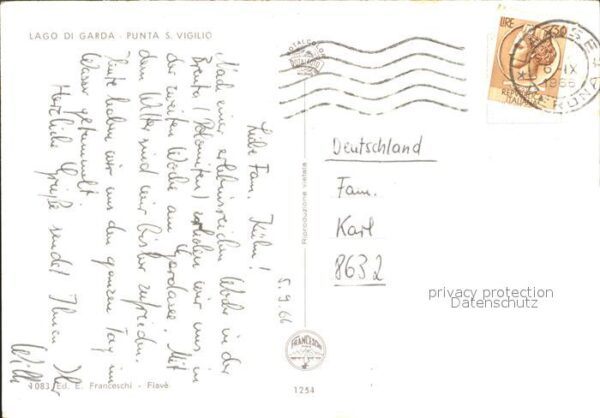 LAGO DI GARDA - PUNTA S. VIGILIO
5.9.66
Liebe Fam. Kühn!
Nach einer erlebnisreichen Woche in der
Brenta (Dolomiten) erholen wir uns in
der zweiten Woche am Gardasee. Mit
dem Wetter sind wir bisher zufrieden.
Heute haben wir uns den ganzen Tag im
Wasser getummelt!
Herzliche Grüße sendet Ihnen Ihr
Willi
4083/Ed. E. Franceschi - Fiavè
Riproduzione vietata
FRANCESCHI
1254
LIRE 30
REPUBBLICA
ITALIANA
6-IX
1966
Deutschland
Fam.
Karl
8632
privacy protection
Datenschutz